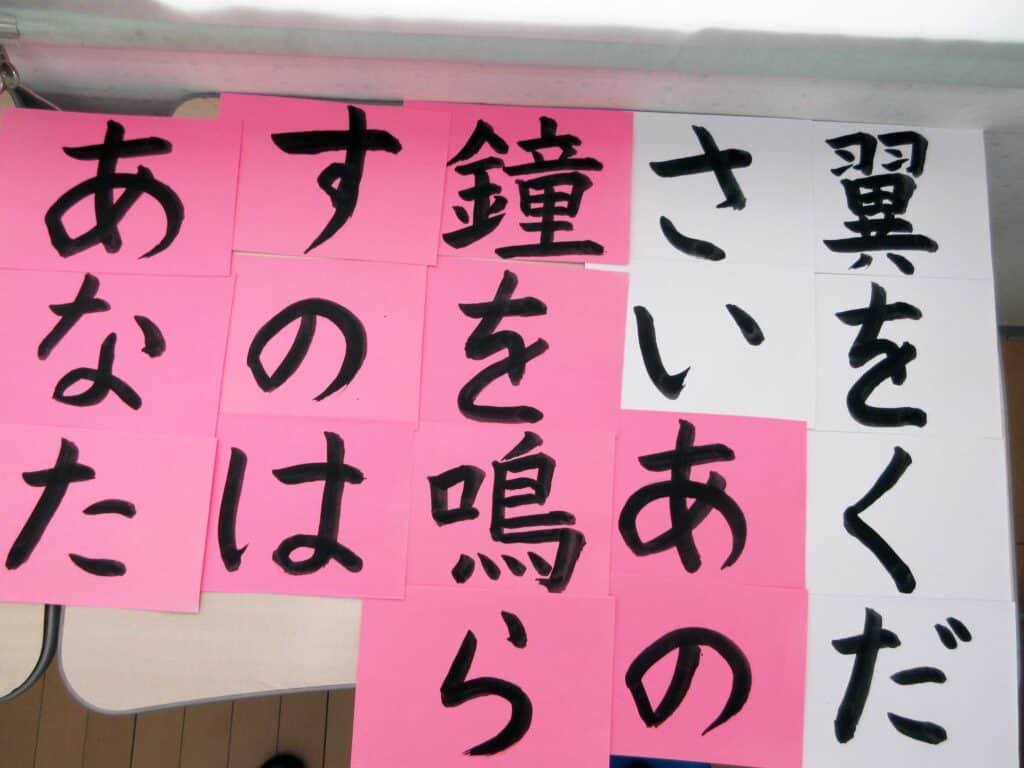 翼をくだ
さいあの
鐘を鳴ら
すのは
あなた